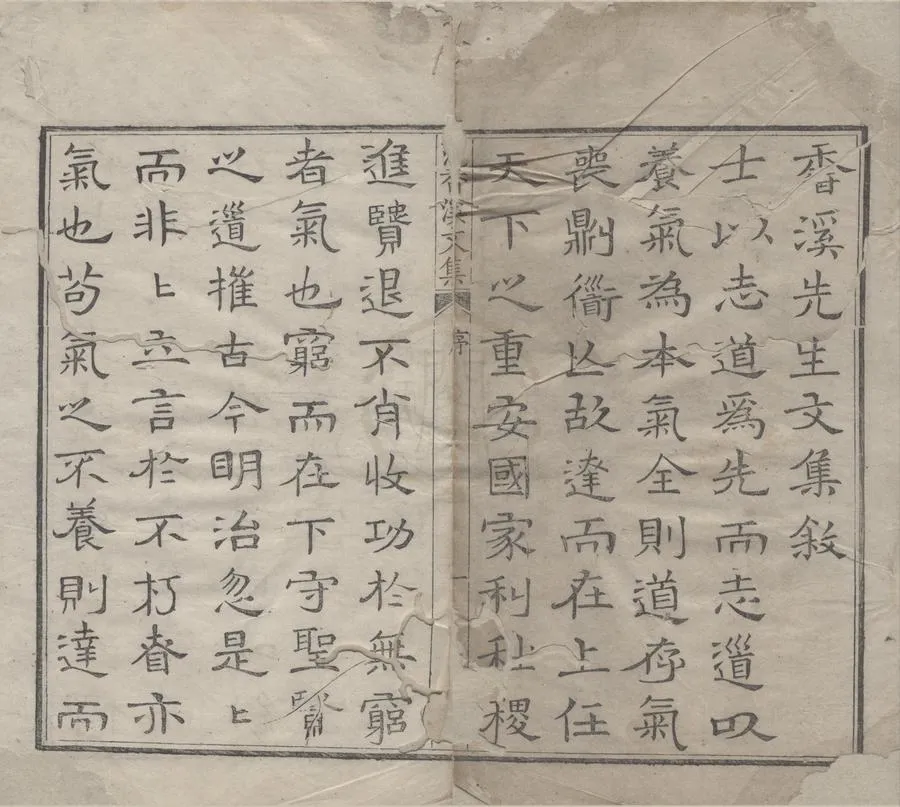 香溪先生文集敘
士以志道爲先而志道㠯
養氣為本氣全則道存氣
喪鼎刂衜亾故達而在上任
天下之重安國家利社稷
香溪文集 序 一
進賢退不肖收功於無窮
者氣也窮而在下守聖賢
之道搉古今明治忽是〻
而非〻立言於不朽者亦
氣也苟氣之不養則達而